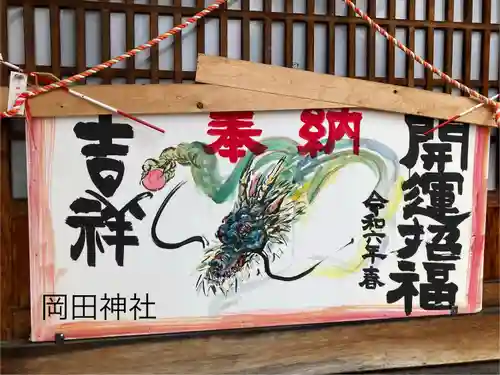 奉納
開運招福
令和六年春
吉祥
岡田神社